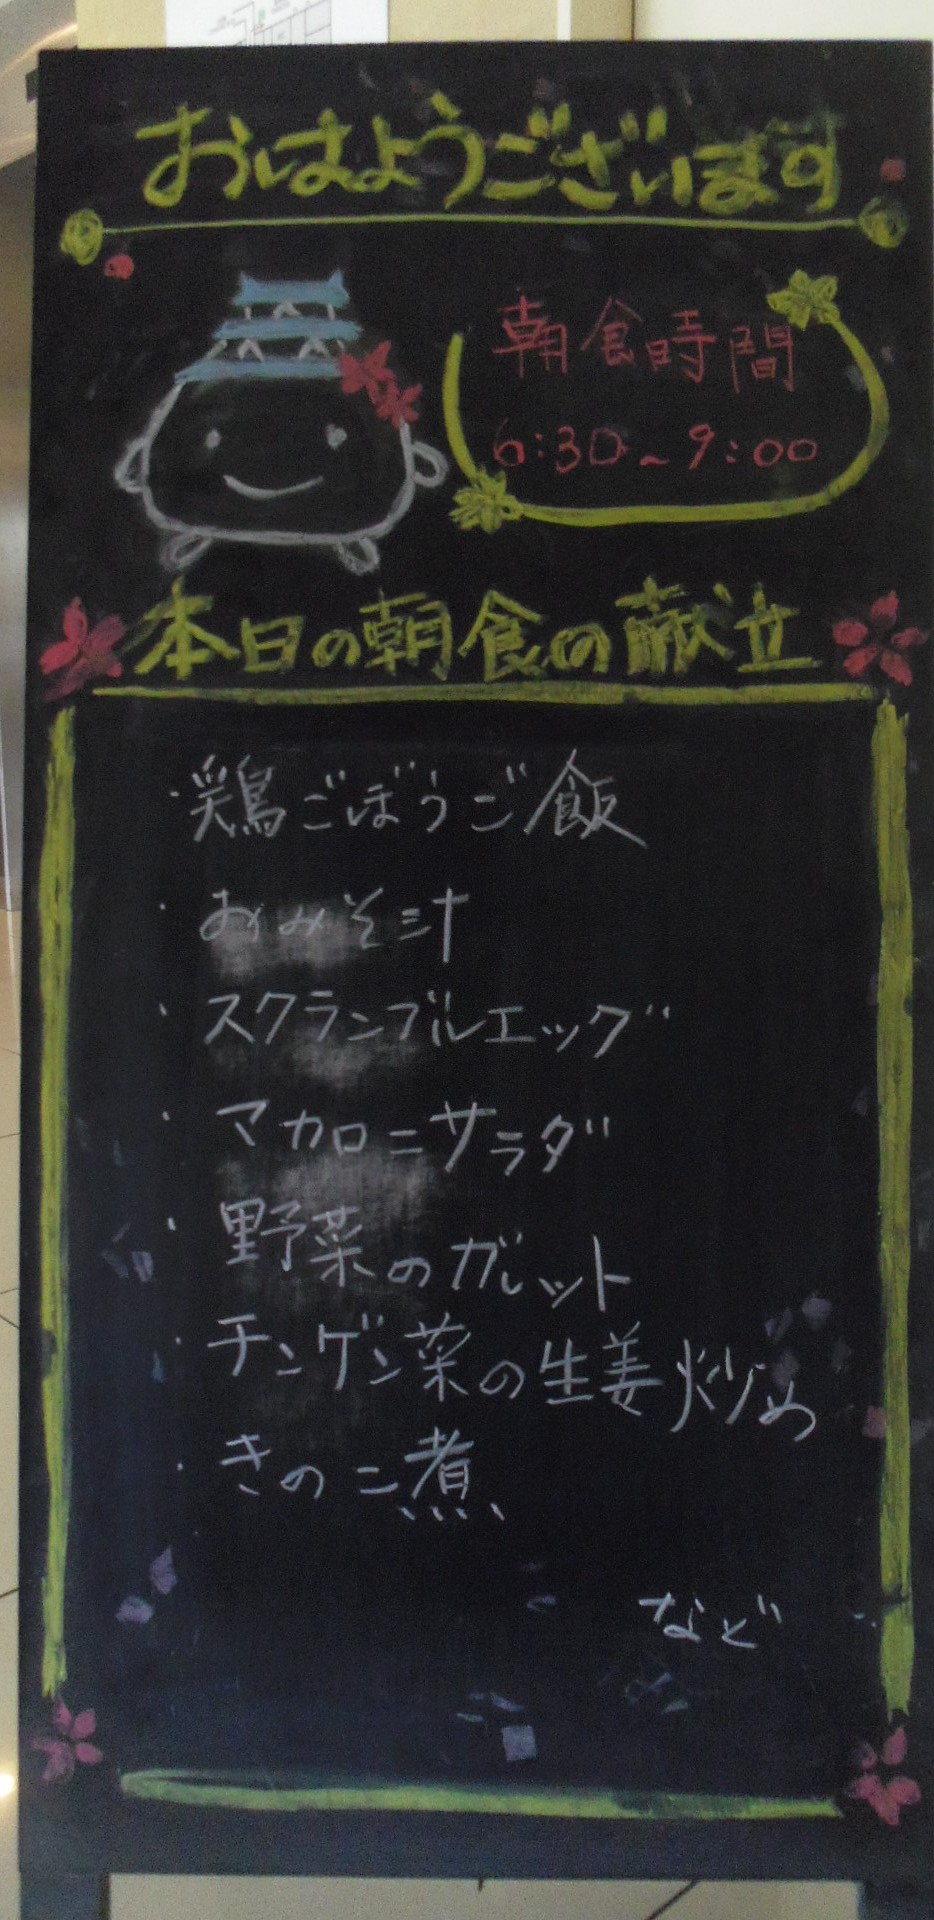 おはようございます
朝食時間
6:30~9:00
本日の朝食の献立
・鶏ごぼうご飯
・おみそ汁
・スクランブルエッグ
・マカロニサラダ
・野菜のガレット
・チンゲン菜の生姜炒め
・きのこ煮
など